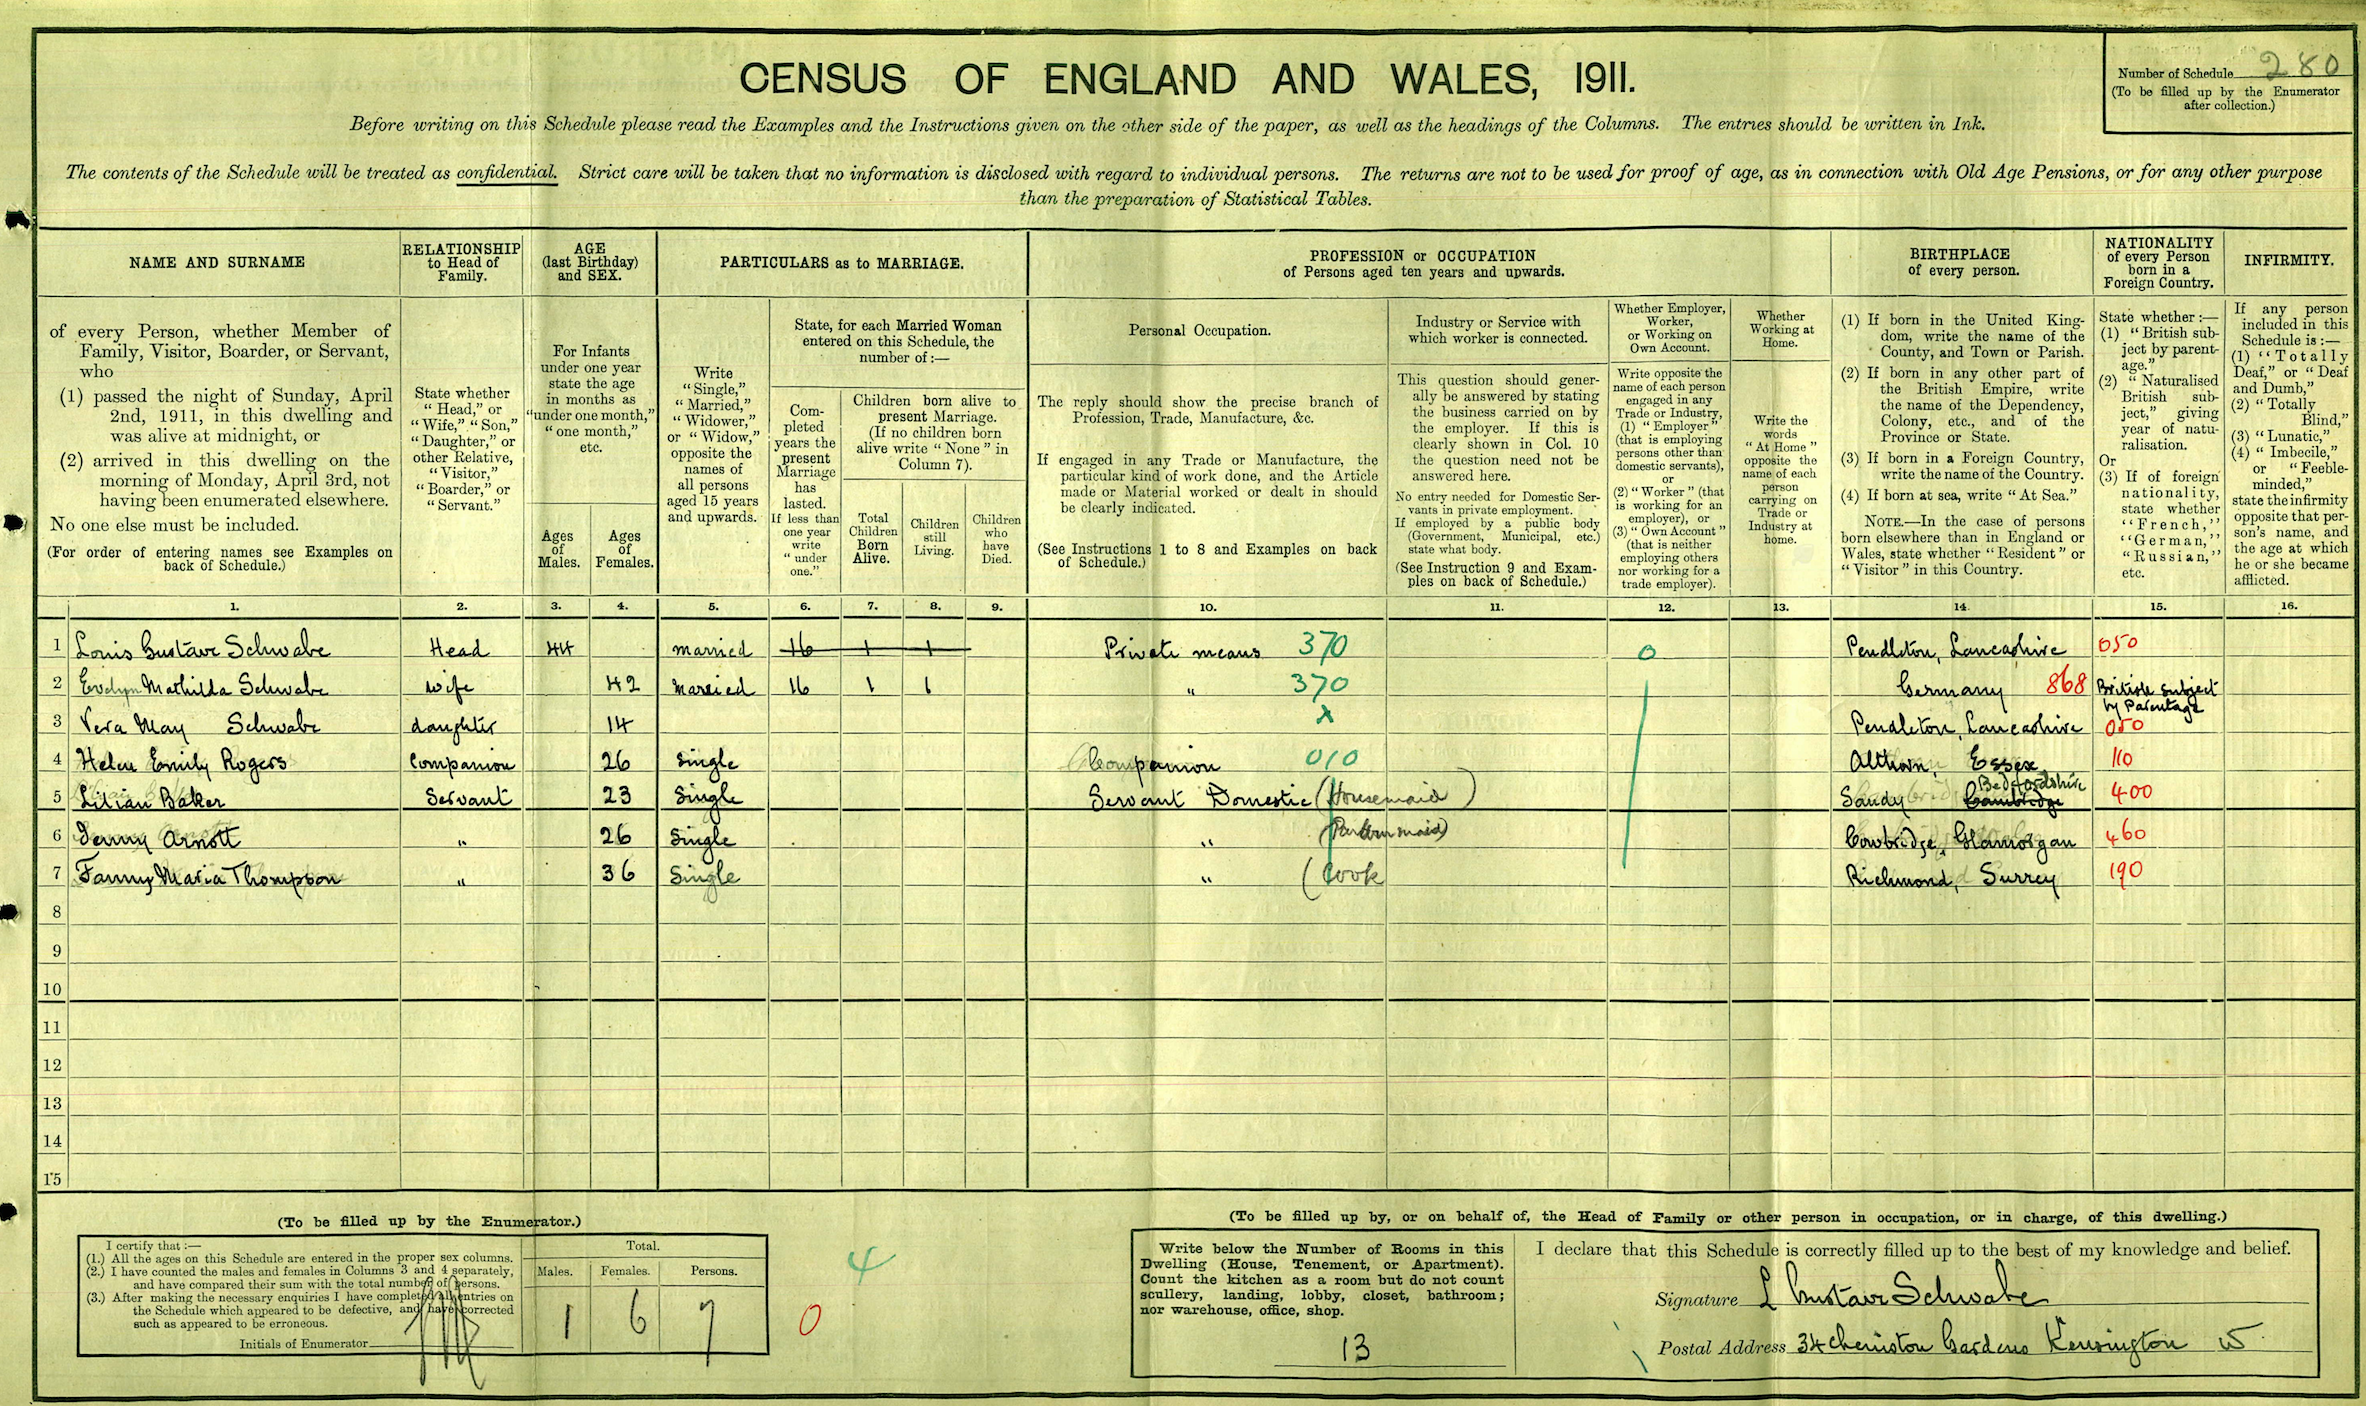 CENSUS OF ENGLAND AND WALES, 1911.
Number of Schedule 280
(To be filled up by the Enumerator
after collection.)
Before writing on this Schedule please read the Examples and the Instructions given on the other side of the paper, as well as the headings of the Columns. The entries should be written in Ink.
The contents of the Schedule will be treated as confidential. Strict care will be taken that no information is disclosed with regard to individual persons. The returns are not to be used for proof of age, as in connection with Old Age Pensions, or for any other purpose
than the preparation of Statistical Tables.
NAME AND SURNAME
RELATIONSHIP
to Head of
Family.
AGE
(last Birthday)
and SEX.
PARTICULARS as to MARRIAGE.
PROFESSION or OCCUPATION
of Persons aged ten years and upwards.
BIRTHPLACE
of every person.
NATIONALITY
of every Person
born in a
Foreign Country.
INFIRMITY.
of every Person, whether Member of
Family, Visitor, Boarder, or Servant,
who
(1) passed the night of Sunday, April
2nd, 1911, in this dwelling and
was alive at midnight, or
(2) arrived in this dwelling on the
morning of Monday, April 3rd, not
having been enumerated elsewhere.
No one else must be included.
(For order of entering names see Examples on
back of Schedule.)
State whether
"Head," or
"Wife," "Son,"
"Daughter," or
other Relative,
"Visitor,"
"Boarder," or
"Servant."
For Infants
under one year
state the age
in months as
"under one month,"
"one month,"
etc.
Ages
of
Males.
Ages
of
Females.
Write
"Single,"
"Married,"
"Widower,"
or "Widow,"
opposite the
names of
all persons
aged 15 years
and upwards.
State, for each Married Woman
entered on this Schedule, the
number of:—
Com-
pleted
years the
present
Marriage
has
lasted.
If less than
one year
write
"under
one."
Children born alive to
present Marriage.
(If no children born
alive write "None" in
Column 7).
Total
Children
Born
Alive.
Children
still
Living.
Children
who
have
Died.
Personal Occupation.
The reply should show the precise branch of
Profession, Trade, Manufacture, &c.
If engaged in any Trade or Manufacture, the
particular kind of work done, and the Article
made or Material worked or dealt in should
be clearly indicated.
(See Instructions 1 to 8 and Examples on back
of Schedule.)
Industry or Service with
which worker is connected.
This question should gener-
ally be answered by stating
the business carried on by
the employer. If this is
clearly shown in Col. 10
the question need not be
answered here.
No entry needed for Domestic Ser-
vants in private employment.
If employed by a public body
(Government, Municipal, etc.)
state what body.
(See Instruction 9 and Exam-
ples on back of Schedule.)
Whether Employer,
Worker,
or Working on
Own Account.
Write opposite the
name of each person
engaged in any
Trade or Industry,
(1) "Employer"
(that is employing
persons other than
domestic servants),
or
(2) "Worker" (that
is working for an
employer), or
(3) "Own Account"
(that is neither
employing others
nor working for a
trade employer).
Whether
Working at
Home.
Write the
words
"At Home"
opposite the
name of each
person
carrying on
Trade or
Industry at
home.
(1) If born in the United King-
dom, write the name of the
County, and Town or Parish.
(2) If born in any other part of
the British Empire, write
the name of the Dependency,
Colony, etc., and of the
Province or State.
(3) If born in a Foreign Country,
write the name of the Country.
(4) If born at sea, write "At Sea."
NOTE.—In the case of persons
born elsewhere than in England or
Wales, state whether "Resident" or
"Visitor" in this Country.
State whether:—
(1) "British sub-
ject by parent-
age."
(2) "Naturalised
British sub-
ject," giving
year of natu-
ralisation.
Or
(3) If of foreign
nationality,
state whether
"French,"
"German,"
"Russian,"
etc.
If any person
included in this
Schedule is:—
(1) "Totally
Deaf," or "Deaf
and Dumb,"
(2) "Totally
Blind,"
(3) "Lunatic,"
(4) "Imbecile,"
or "Feeble-
minded,"
state the infirmity
opposite that per-
son's name, and
the age at which
he or she became
afflicted.
1. 2. 3. 4. 5. 6. 7. 8. 9. 10. 11. 12. 13. 14. 15. 16.
1 Louis Gustave Schwabe Head 44 married 16 1 1 Private means 370 0 Pendleton, Lancashire 050
2 Evelyn Mathilda Schwabe wife 42 Married 16 1 1 " 370 Germany 868 British subject
by Parentage
3 Vera May Schwabe daughter 14 x Pendleton, Lancashire 050
4 Helen Emily Rogers Companion 26 Single Companion 010 Althorn, Essex 110
5 Lilian Baker Servant 23 Single Servant Domestic (Housemaid) Sandy Cambridge Bedfordshire 400
6 Arnott " 26 Single " (Parlourmaid) Cowbridge, Glamorgan 460
7 Fanny Maria Thompson " 36 Single " (Cook Richmond, Surrey 190
8
9
10
11
12
13
14
15
(To be filled up by the Enumerator.)
I certify that:—
(1.) All the ages on this Schedule are entered in the proper sex columns.
(2.) I have counted the males and females in Columns 3 and 4 separately,
and have compared their sum with the total number of persons.
(3.) After making the necessary enquiries I have completed all entries on
the Schedule which appeared to be defective, and have corrected
such as appeared to be erroneous.
Initials of Enumerator
Total.
Males. Females. Persons.
1 6 7
4
0
(To be filled up by, or on behalf of, the Head of Family or other person in occupation, or in charge, of this dwelling.)
Write below the Number of Rooms in this
Dwelling (House, Tenement, or Apartment).
Count the kitchen as a room but do not count
scullery, landing, lobby, closet, bathroom;
nor warehouse, office, shop.
13
I declare that this Schedule is correctly filled up to the best of my knowledge and belief.
Signature L Gustave Schwabe
Postal Address 34 Cheniston Gardens Kensington W